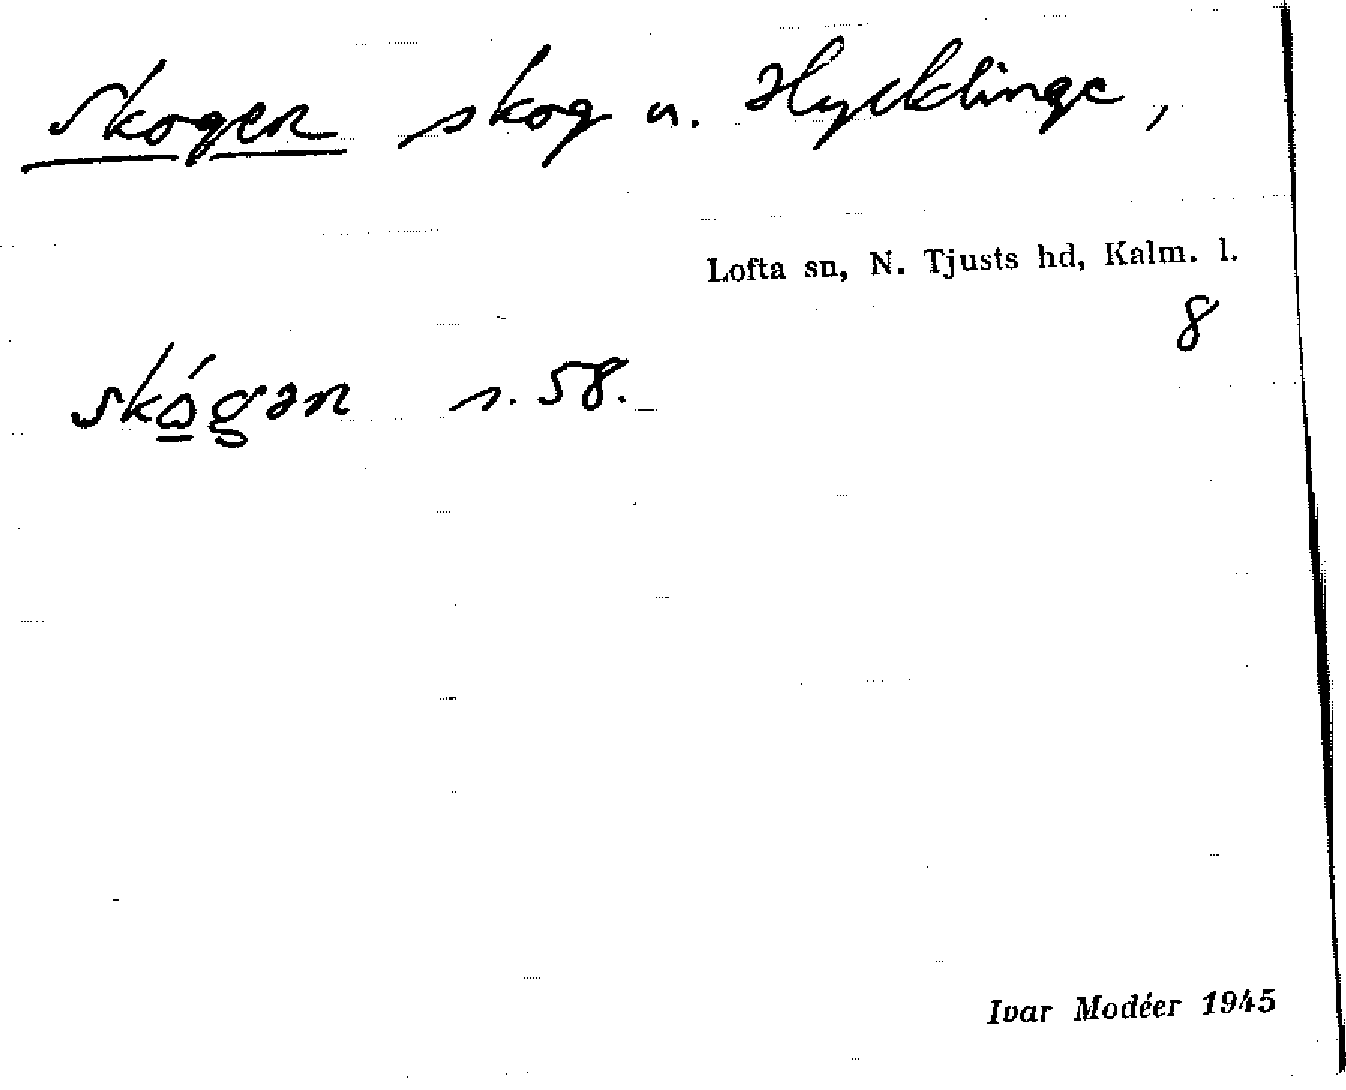 Skogen skog u. Hycklinge,
Lofta sn, N. Tjusts hd, Kalm. l.
8
skó̲gən s. 58.
Ivar Modéer 1945